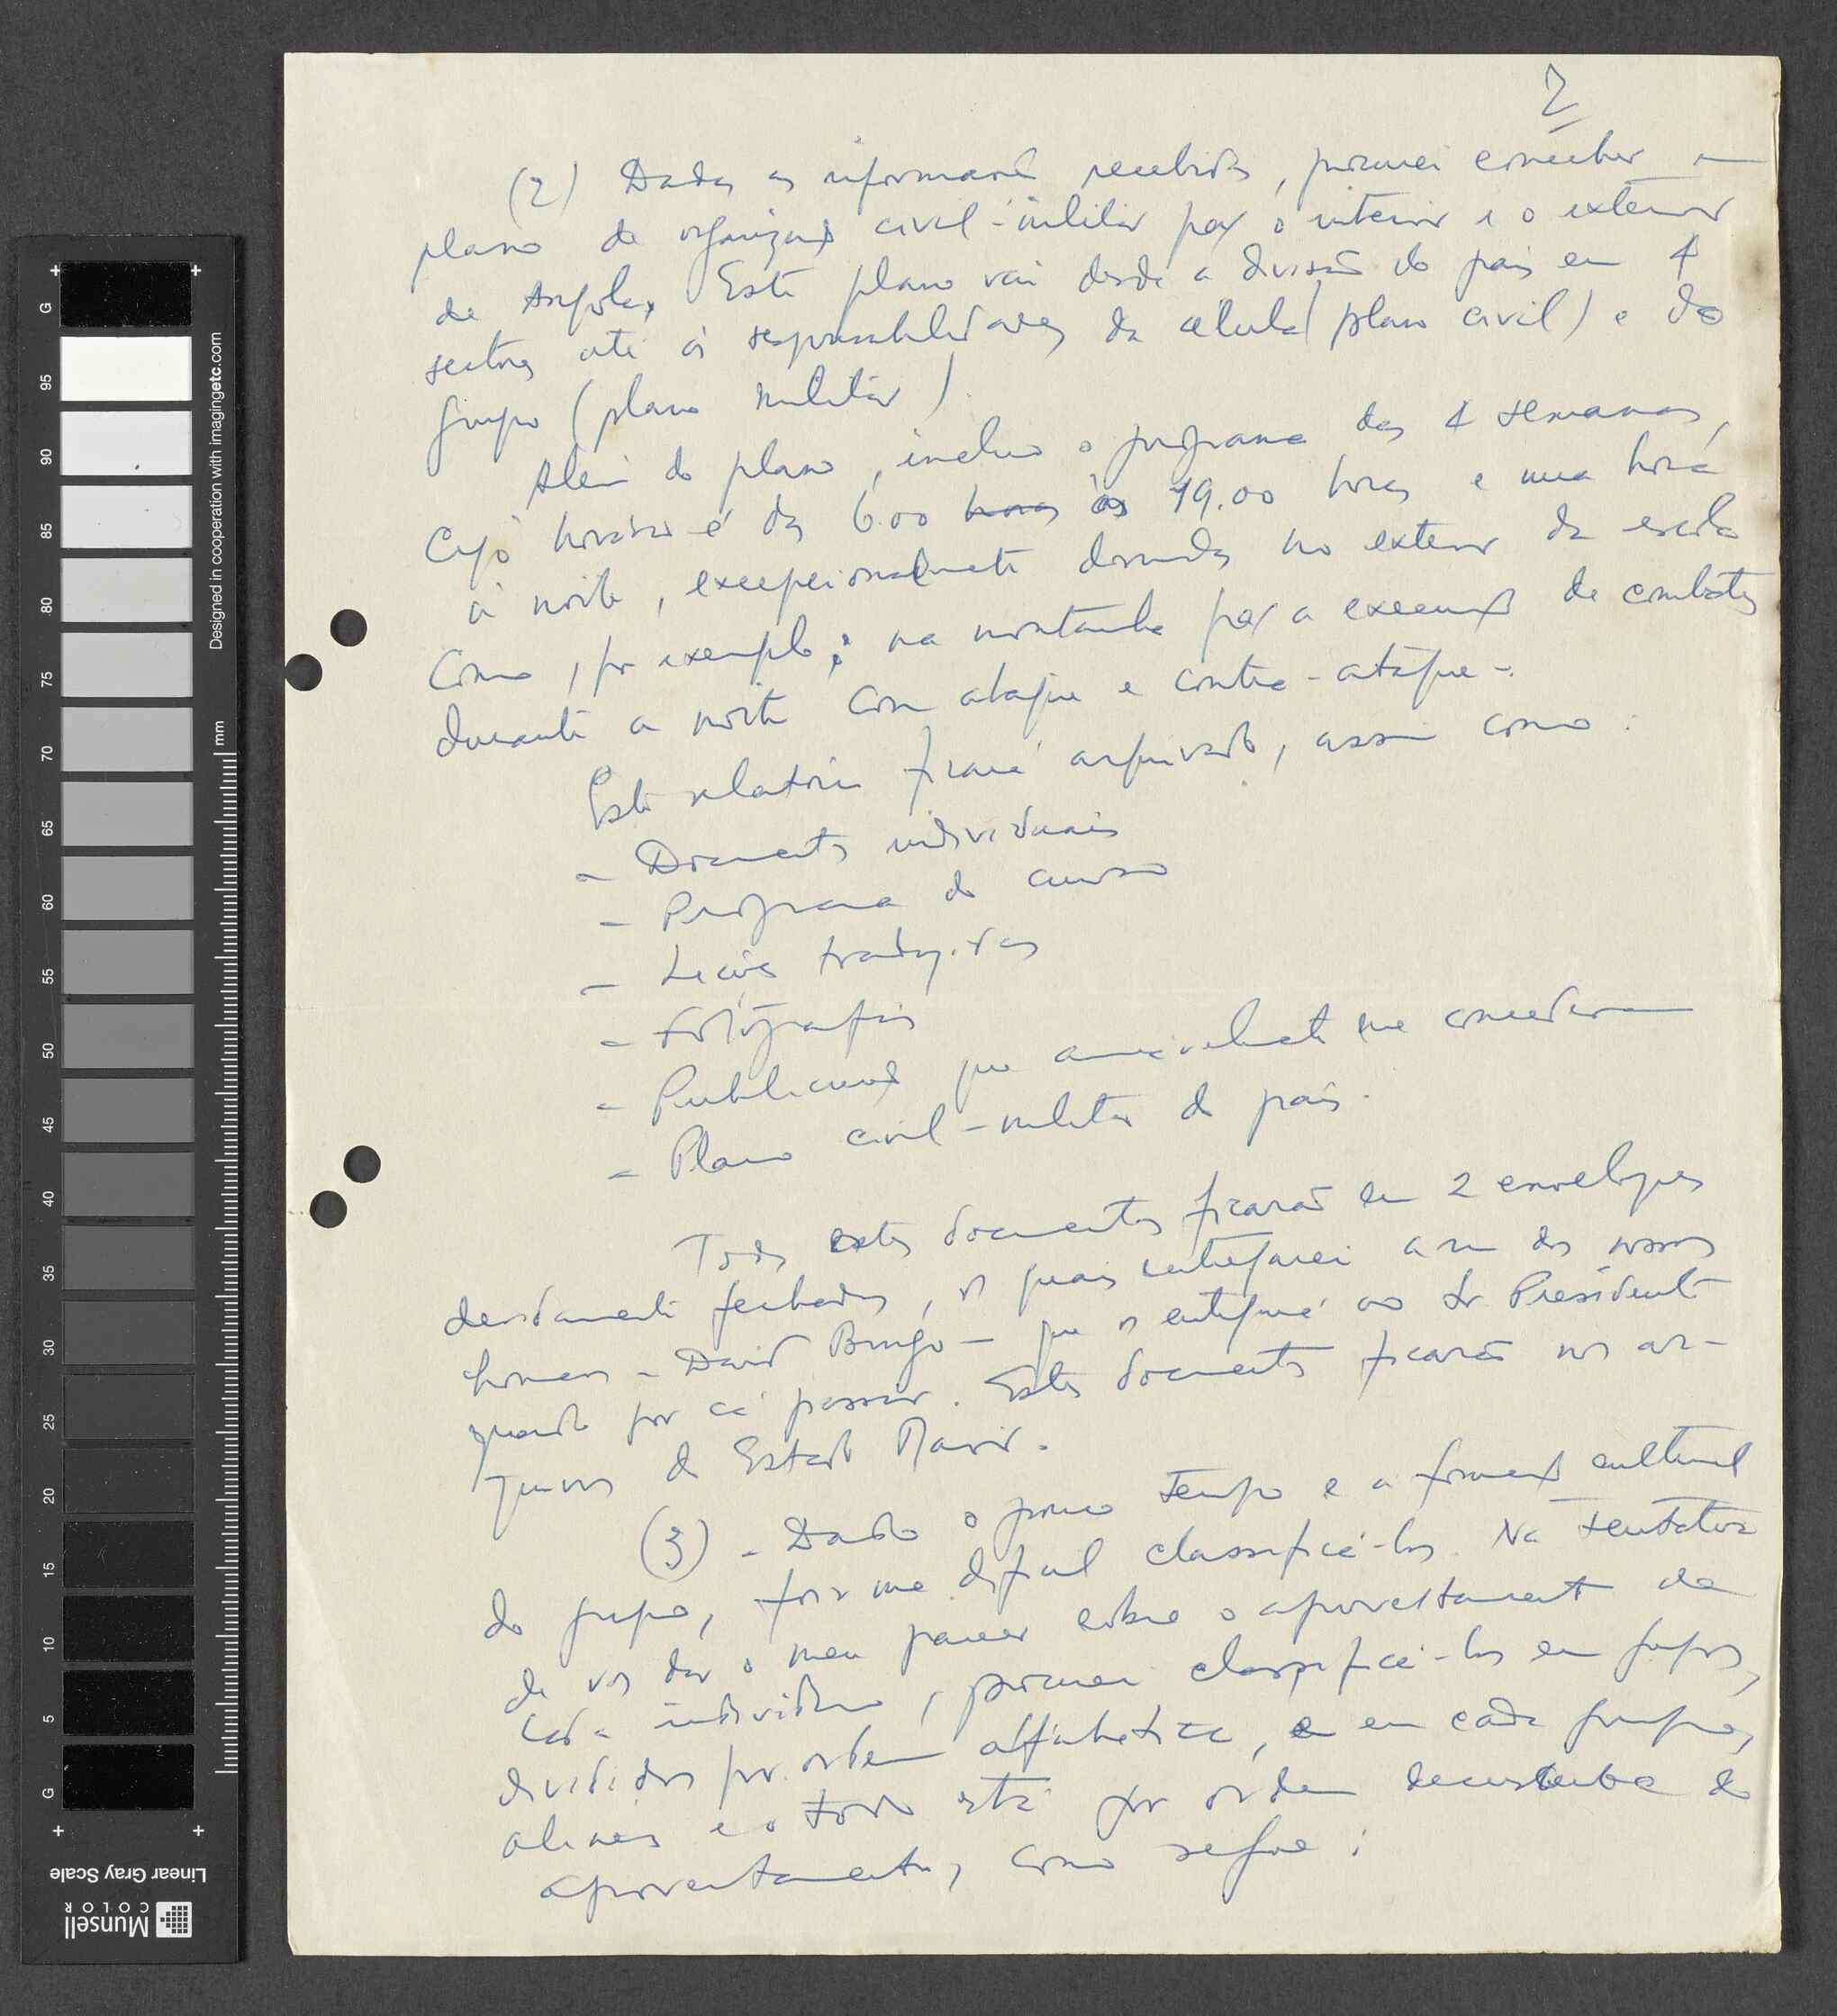 2
(2) Dadas as informações recebidas, procurei conceber um
plano de organização civil-militar para o interior e o exterior
de Angola. Este plano vai desde a divisão do país em 4
sectores até às responsabilidades da célula (plano civil) e do
grupo (plano militar).
Além do plano, incluo o programa das 4 semanas,
cujo horário é das 6.00 horas às 19.00 horas e uma hora
à noite, excepcionalmente dormidas no exterior da escola
como, por exemplo: na montanha para a execução de combates
durante a noite com ataque e contra-ataque-.
Este relatório ficará arquivado, assim como:
- Documentos individuais
- Programa do curso
- Lições traduzidas
- Fotografias
- Publicações que amavelmente me concederam
- Plano civil-militar do país.
Todos estes documentos ficarão em 2 envelopes
devidamente fechados, os quais entregarei a um dos nossos
homens - David - que os entregará ao Sr. Presidente
quando por cá passar. Estes documentos ficarão nos ar-
quivos do Estado Maior.
(3) - Dado o pouco tempo e a formação cultural
do grupo, foi-me difícil classificá-los. Na tentativa
de vos dar o meu parecer sobre o aproveitamento de
cada indivíduo, procurei classificá-los em grupos,
divididos por ordem alfabética, e em cada grupo,
alíneas e o todo está por ordem decrescente do
aproveitamento, como segue:
Designed in cooperation with imagingetc.com
mm
G
95
90
85
80
75
70
65
60
55
50
45
40
35
30
25
20
15
10
5
G
Linear Gray Scale
Munsell
COLOR